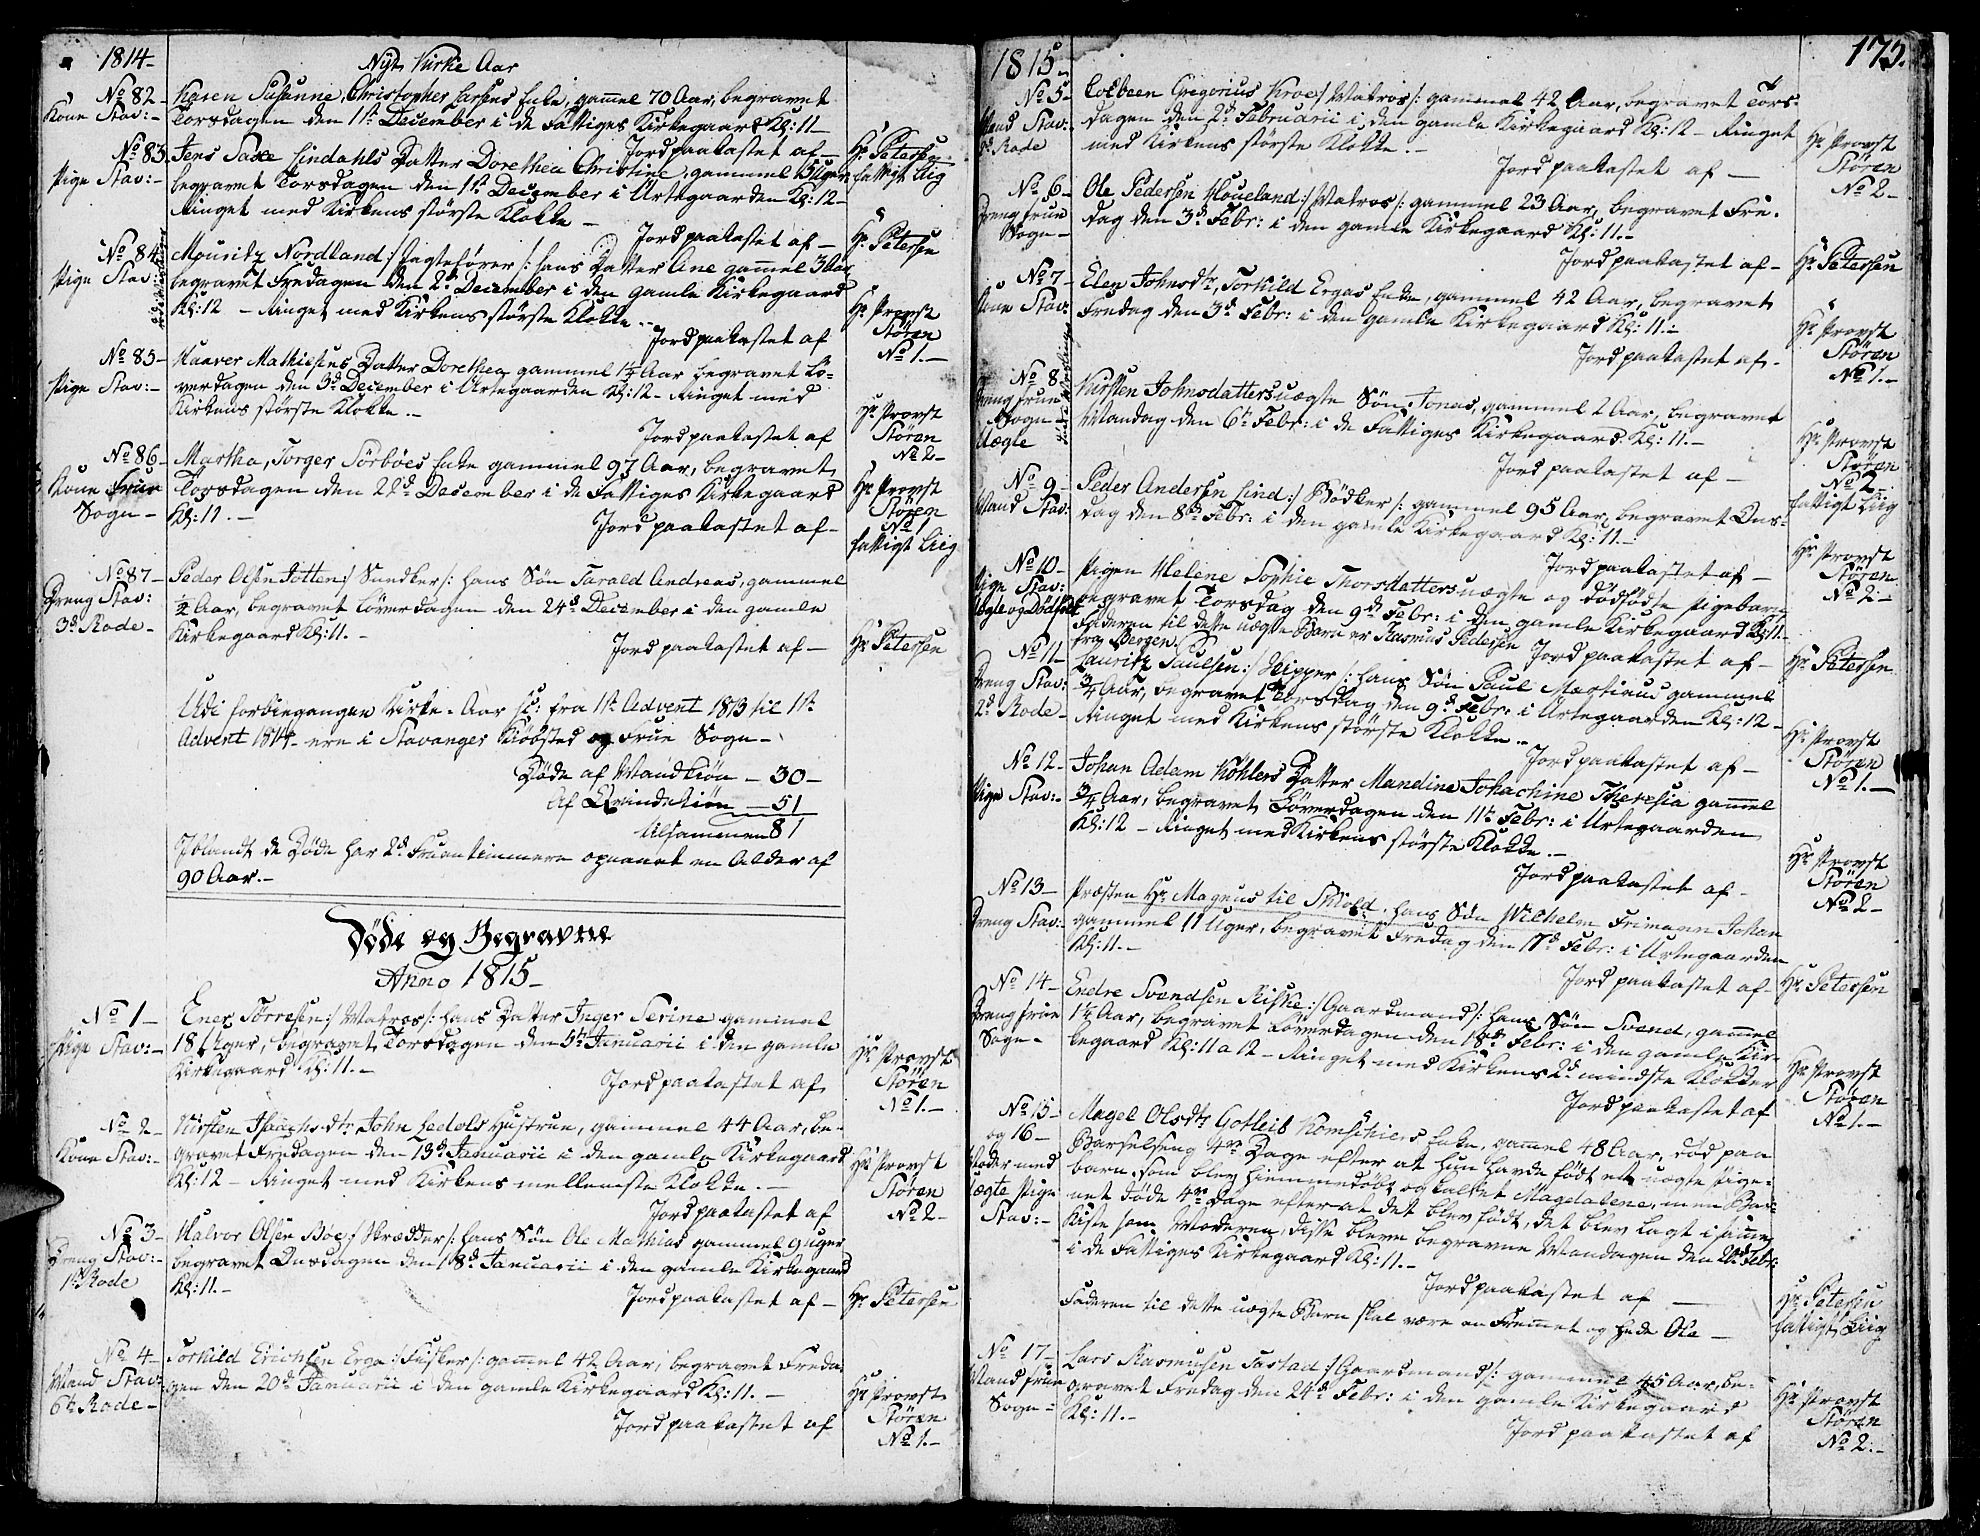 1814-
Nyt Kirke Aar
No 82-
Kone Stav:-
Karen Susanne, Christopher Larsens Enke, gamel 70 Aar, begravet
Torsdagen den 1ste December i de Fattiges Kirkegaard Kl: 11-
Jordpaakastet af-
Hr Petersen
fattigt Liig
No 83
Pige Stav:-
Jens Saxe Lindahls Datter Dorethea Christine, gammel 3 Uger
begravet Torsdagen den 1ste December i Urtegaarden Kl: 12-
Ringet med Kirkens største Klokke-
Jordpaakastet af-
Hr Petersen
No 84
Pige Stav:
Mouritz Nordland :/ Fagtefører /: hans Datter Ane gamel 3 Aar
begravet Fredagen den 2d December i den gamle Kirkegaard
Kl: 12 - Ringet med Kirkens største Klokke-
Jordpaakastet af
Hr Provst
Støren
No 1.-
No 85-
Pige Stav:-
Haaver Mathiesens Datter Dorethea gammel 1 1/4 Aar begravet Lø-
verdagen den 3d December i Urtegaarden Kl: 12- Ringet med
Kirkens største Klokke-
Jordpaakastet af
Hr Provst
Støren
No 2-
No 86-
Kone Frue
Sogn-
Martha, Torger Sørbøes Enke gammel 97 Aar, begravet
Torsdagen den 22d December i de Fattiges Kirkegaard
Kl: 11.-
Jordpaakastet af-
Hr Provst
Støren
No 1
fattigt Liig
No 87-
Dreng Stav:
3d Rode-
Peder Olsen Jotten :/ Snedker /: hans Søn Tarald Andreas, gammel
1/2 Aar, begravet Løverdagen den 24d December i den gamle
Kirkegaard Kl: 11.-
Jordpaakastet af-
Hr Petersen
Udi forbiegangen Kirke-Aar sc: fra 1ste Advent 1813 til 1ste
Advent 1814- ere i Stavanger Kiøbsted og Frue Sogn-
Døde af Mandkiøn - 30-
Af Qvindekiøn - 51
tilsammen 81
Iblandt de Døde har 2de Fruentimmere opnaaet en Alder af
90 Aar.-
Døde og Begravne
Anno 1815-
No 1-
Pige Stav:-
Ener Tørresen :/ Matros /: hans Datter Inger Serine gammel
18 Uger, begravet Torsdagen den 5te Januarii i den gamle
Kirkegaard Kl: 11.-
Jordpaakastet af
Hr Provst
Støren
No 1.-
No 2-
Kone Stav:-
Kirsten Isaachsdtr John Ledels Hustrue, gammel 44 Aar, be-
gravet Fredagen den 13de Januarii i den gamle Kirkegaard
Kl: 12 - Ringet med Kirkens mellemste Klokke.-
Jordpaakastet af
Hr Provst
Støren
No 2-
No 3-
Dreng Stav:-
1ste Rode
Halvor Olsen Boe :/ Skrædder /: hans Søn Ole Mathias gammel 9 Uger
begravet Onsdagen den 18de Januarii i den gamle Kirkegaard
Kl: 11.-
Jordpaakastet af-
Hr Petersen
No 4-
Mand Stav:
6te Rode-
Torkild Erichsen Erga :/ Fisker /: gamel 42 Aar, begravet Freda-
gen den 20de Januarii i den gamle Kirkegaard Kl: 11.-
Jordpaakastet af
Hr Provst
Støren
No 1.-
1815-
173.
No 5-
Mand Stav:
Rode
Colbeen Gregorius Kroes :/ Matros /: gammel 42 Aar, begravet Tors-
dagen den 2d Februarii i den gamle Kirkegaard Kl: 12 - Ringet
med Kirkens største Klokke.-
Jordpaakastet af-
Hr Provst
Støren
No 2-
No 6-
Dreng Frue
Sogn-
Ole Pedersen Houeland :/ Matros /: gammel 23 Aar, begravet Fre-
dag den 3d Febr: i den gamle Kirkegaard Kl: 11.-
Jordpaakastet af-
Hr Petersen
No 7-
Kone Stav:
Elen Johnsdtr, Torkild Ergas Enke, gammel 42 Aar, begravet
Fredag den 3d Febr: i den gamle Kirkegaard Kl: 11.-
Jordpaakastet af-
Hr Provst
Støren
No 1.-
No 8
Dreng Frue
Sogn-
Uægte
Kirsten Johnsdatters uægte Søn Jonas, gammel 2 Aar, begravet
Mandag den 6te Febr: i de Fattiges Kirkegaard Kl: 11.-
Jordpaakastet af-
Hr Provst
Støren
No 2-
fattigt Liig
No 9-
Mand Stav:
Peder Andersen Lind :/ Bødker /: gammel 95 Aar, begravet Ons-
dag den 8de Febr: i den gamle Kirkegaard Kl: 11.-
Jordpaakastet af-
Hr Provst
Støren
No 2-
No 10-
Pige Stav:
Uægte og Dødfødt
Pigen Helene Sophie Thorsdatters uægte og dødfødte Pigebarn
begravet Torsdag den 9de Febr: i den gamle Kirkegaard Kl: 11-
Faderen til dette uægte Barn er Rasmus Pedersen
fra Bergen.
Jordpaakastet af-
Hr Petersen
No 11-
Dreng Stav:
2d Rode-
Lauritz Paulsen :/ Skipper /: hans Søn Paul Martinus gammel
3/4 Aar, begravet Torsdag den 9de Febr: i Urtegaarden Kl: 12-
Ringet med Kirkens største Klokke-
Jordpaakastet af-
Hr Provst
Støren
No 1.-
No 12-
Pige Stav:-
Johan Adam Köhlers Datter Mandine Johachine Theresia gamel
3/4 Aar, begravet Løverdagen den 11te Febr: i Urtegaarden
Kl: 12 - Ringet med Kirkens største Klokke.-
Jordpaakastet af-
Hr Provst
Støren
No 2-
No 13-
Dreng Stav:
Præsten Hr Magnus til Skiold, hans Søn Wilhelm Frimann Johan
gammel 11 Uger, begravet Fredag den 17de Febr: i Urtegaarden
Kl: 11.-
Jordpaakastet af-
Hr Petersen
No 14-
Dreng Frue
Sogn-
Endre Svendsen Riske :/ Gaardmand /: hans Søn Svend, gamel
1 1/4 Aar, begravet Løverdagen den 18de Febr: i den gamle Kir-
kegaard Kl: 11 a 12 - Ringet med Kirkens 2de mindste Klokker
Jordpaakastet af
Hr Provst
Støren
No 1.-
No 15-
og 16-
Moder med
uægte Pige
Stav:-
Magel Olsdtr Gotleib Kömschiers Enke, gamel 48 Aar, død paa
Barselseng 4re Dage efter at hun havde født et uægte Pige-
barn, som blev hiemmedøbt og kaldet Magdalene, men Bar-
net døde 4re Dage efter at det blev født, det blev lagt i samme
Kiste som Moderen, disse bleve begravne Mandagen den 20de Febr:
i de Fattiges Kirkegaard Kl: 11.-
Jordpaakastet af-
Faderen til dette uægte Barn skal være en Fremmet og hede Ole-
Hr Petersen
fattigt Liig
No 17-
Mand Frue
Sogn-
Lars Rasmusen Tastad :/ Gaardmand /: gammel 45 Aar, be-
gravet Fredag den 24de Febr: i den gamle Kirkegaard
Kl: 11.-
Jordpaakastet af
Hr Provst
Støren
No 2.-